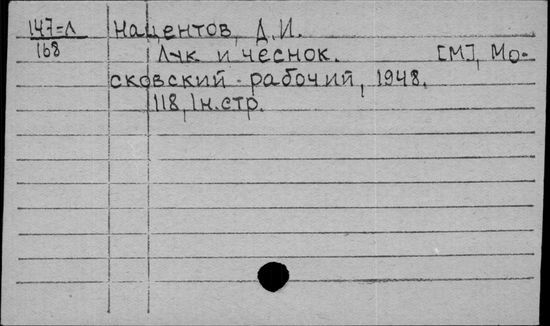 147=Л Нацентов, Д.И.
168 Лук и чеснок. [М], Мо-
сковский рабочий, 1948.
118, 1н.стр.